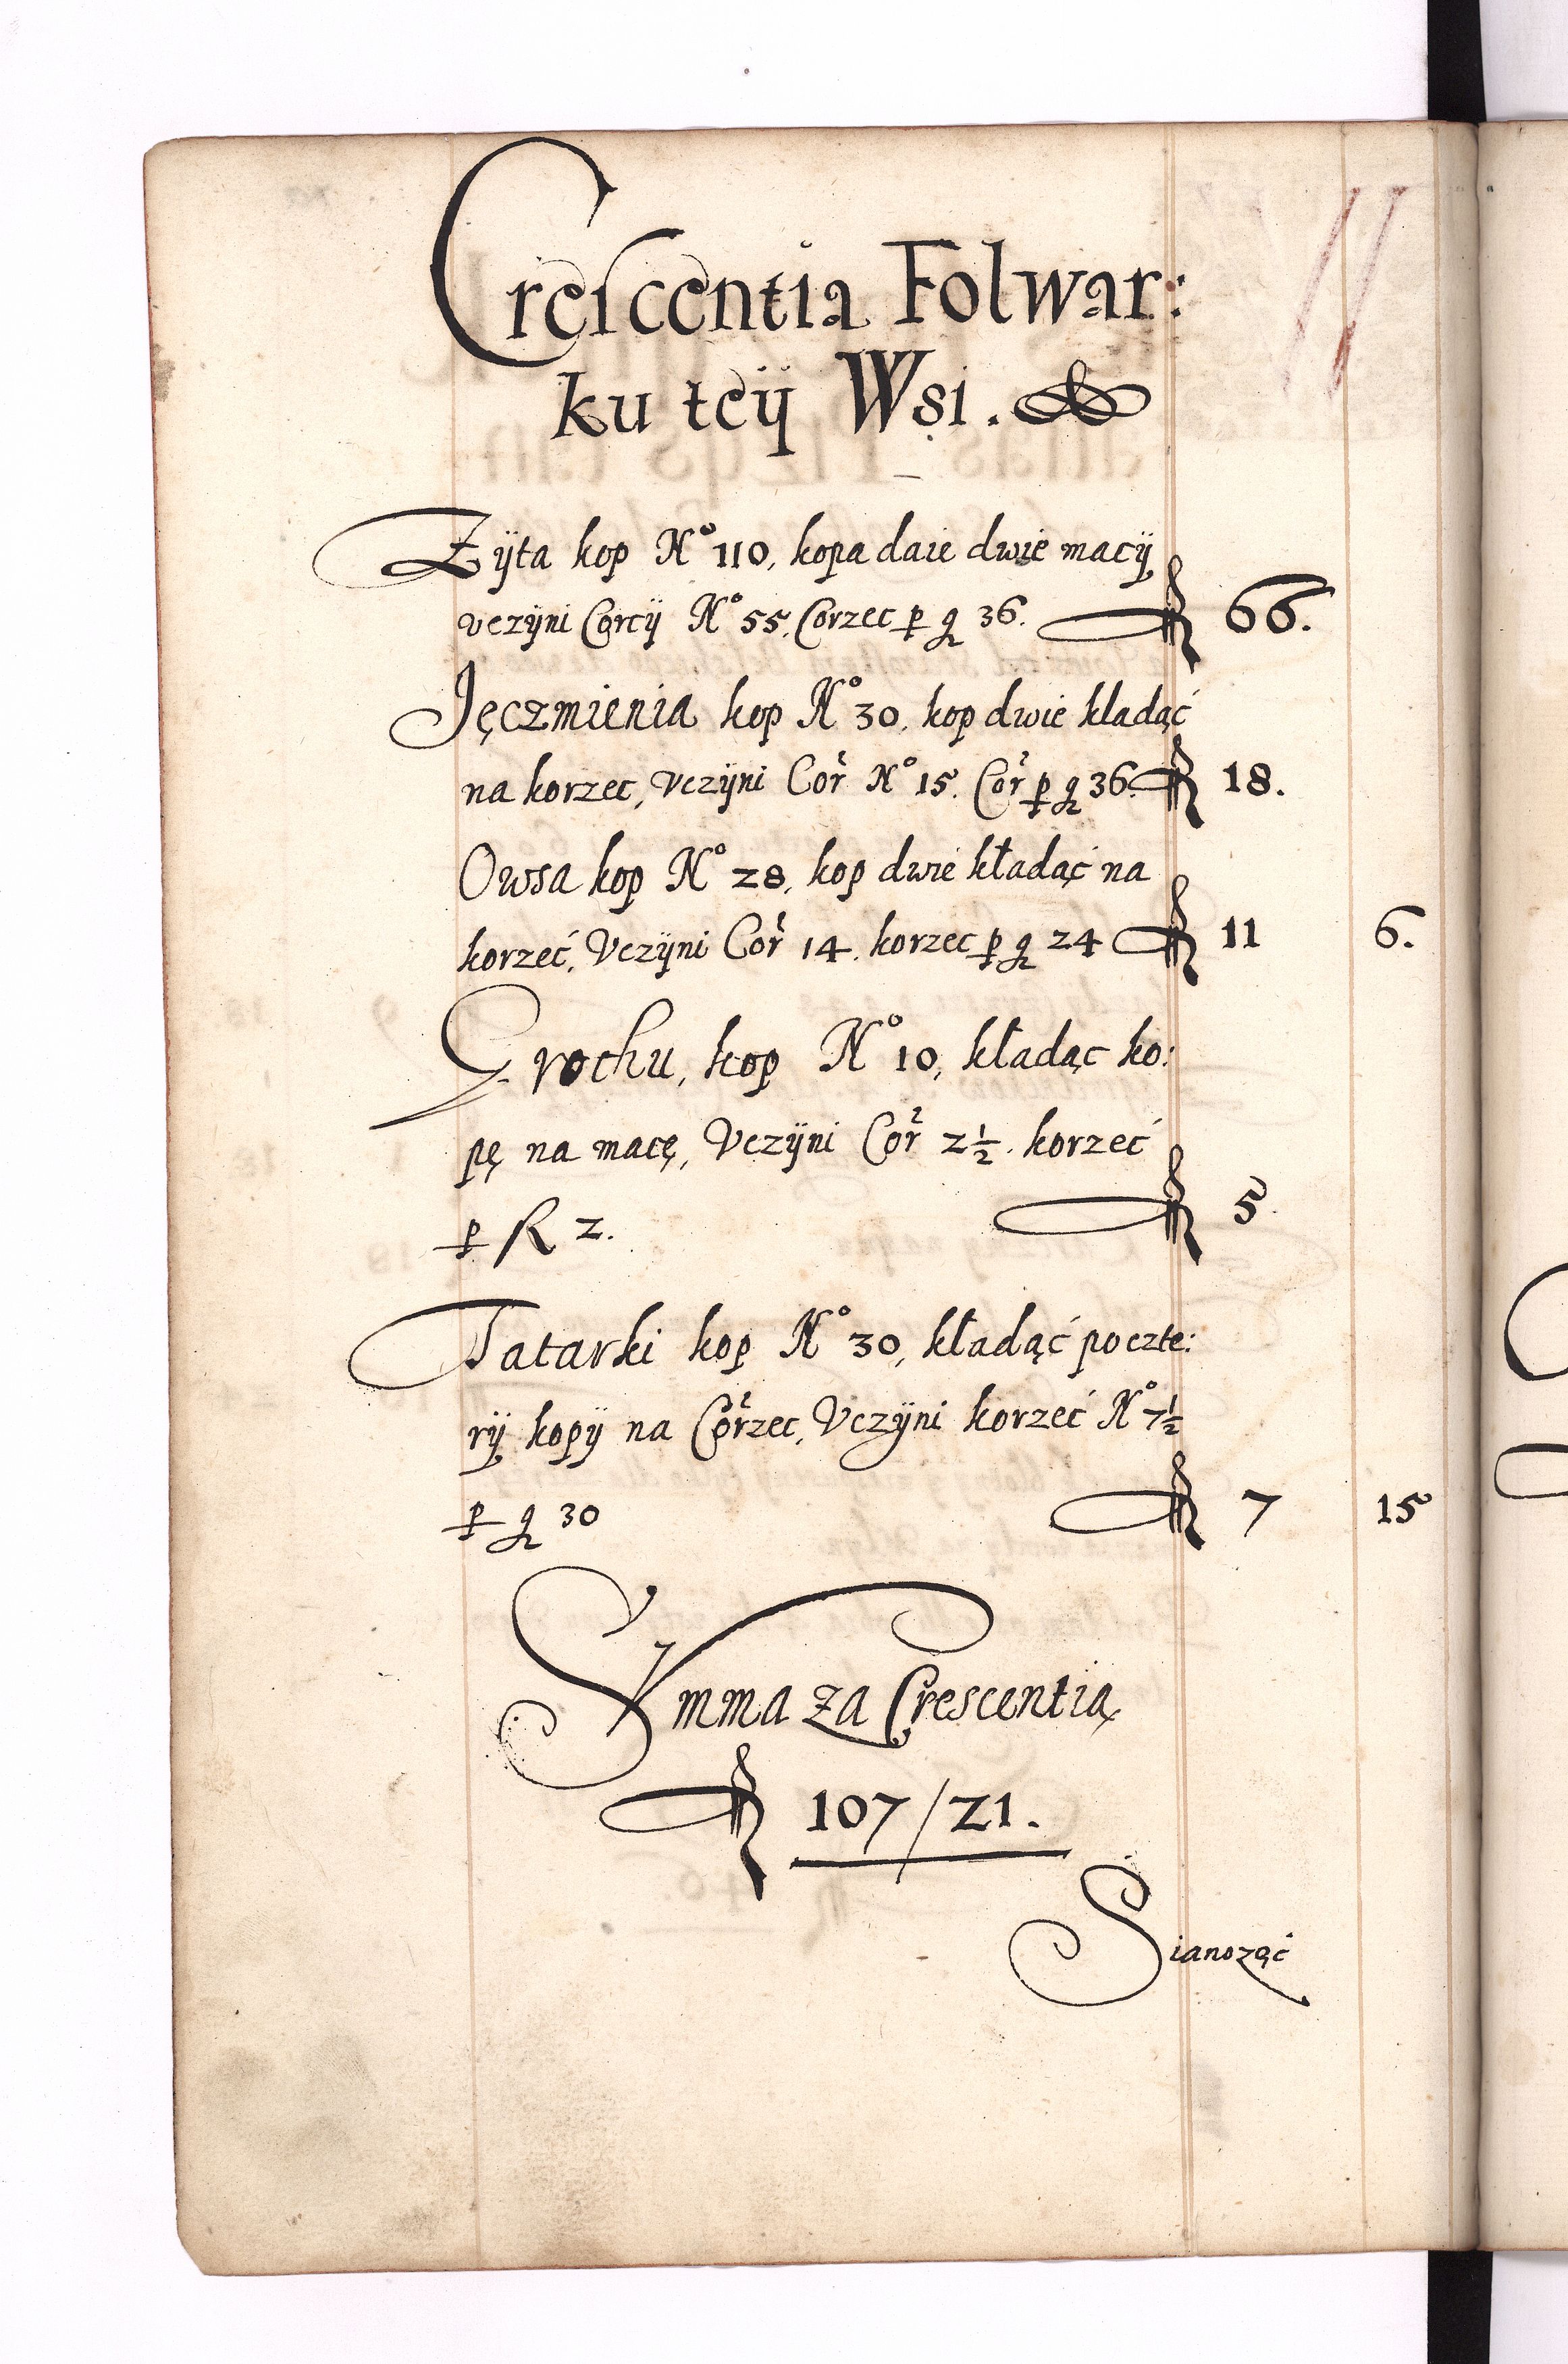 Crescentia Folwar:
ku teÿ Wsi.
Zÿta kop N° 110, kopa daie dwie macÿ
vczÿni Corcÿ N° 55. Corzec p g 36. 66.
Jęczmienia kop N° 30, kop dwie kladąć
na korzec, Vczÿni Cor N° 15. Cor p g 36. 18.
Owsa kop N° 28, kop dwie kładąć na
korzeć, Vczÿni Cor 14. korzec p g 24 11 6.
Grochu, kop N° 10, kładąc ko:
pę na macę, Vczÿni Cor 2½. korzeć
p R 2. 5
Tatarki kop N° 30, kładąć po czte:
rÿ kopÿ na Corzec, Vczÿni korzeć N° 7½
p g 30 7 15
SVmma za Crescentią
107/21.
Sianozęć